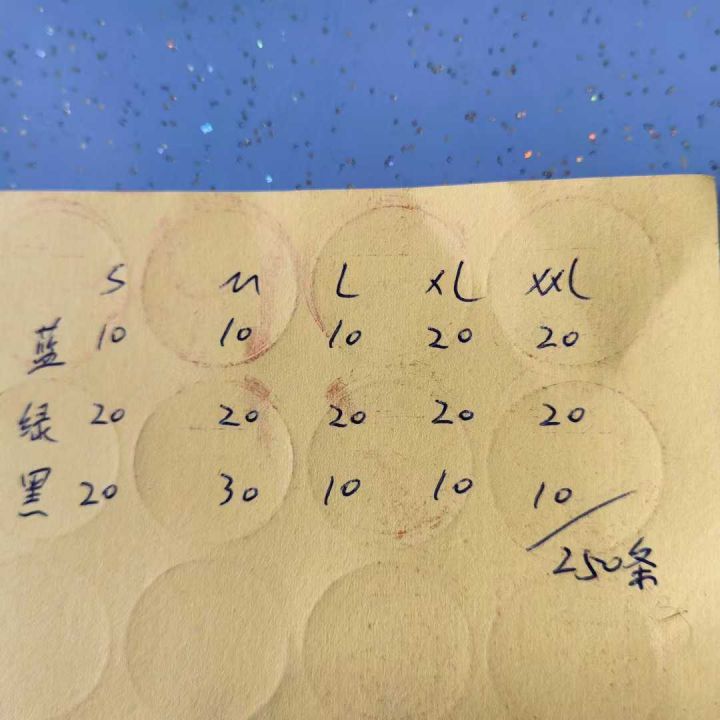 S M L XL XXL
蓝 10 10 10 20 20
绿 20 20 20 20 20
黑 20 30 10 10 10
250条